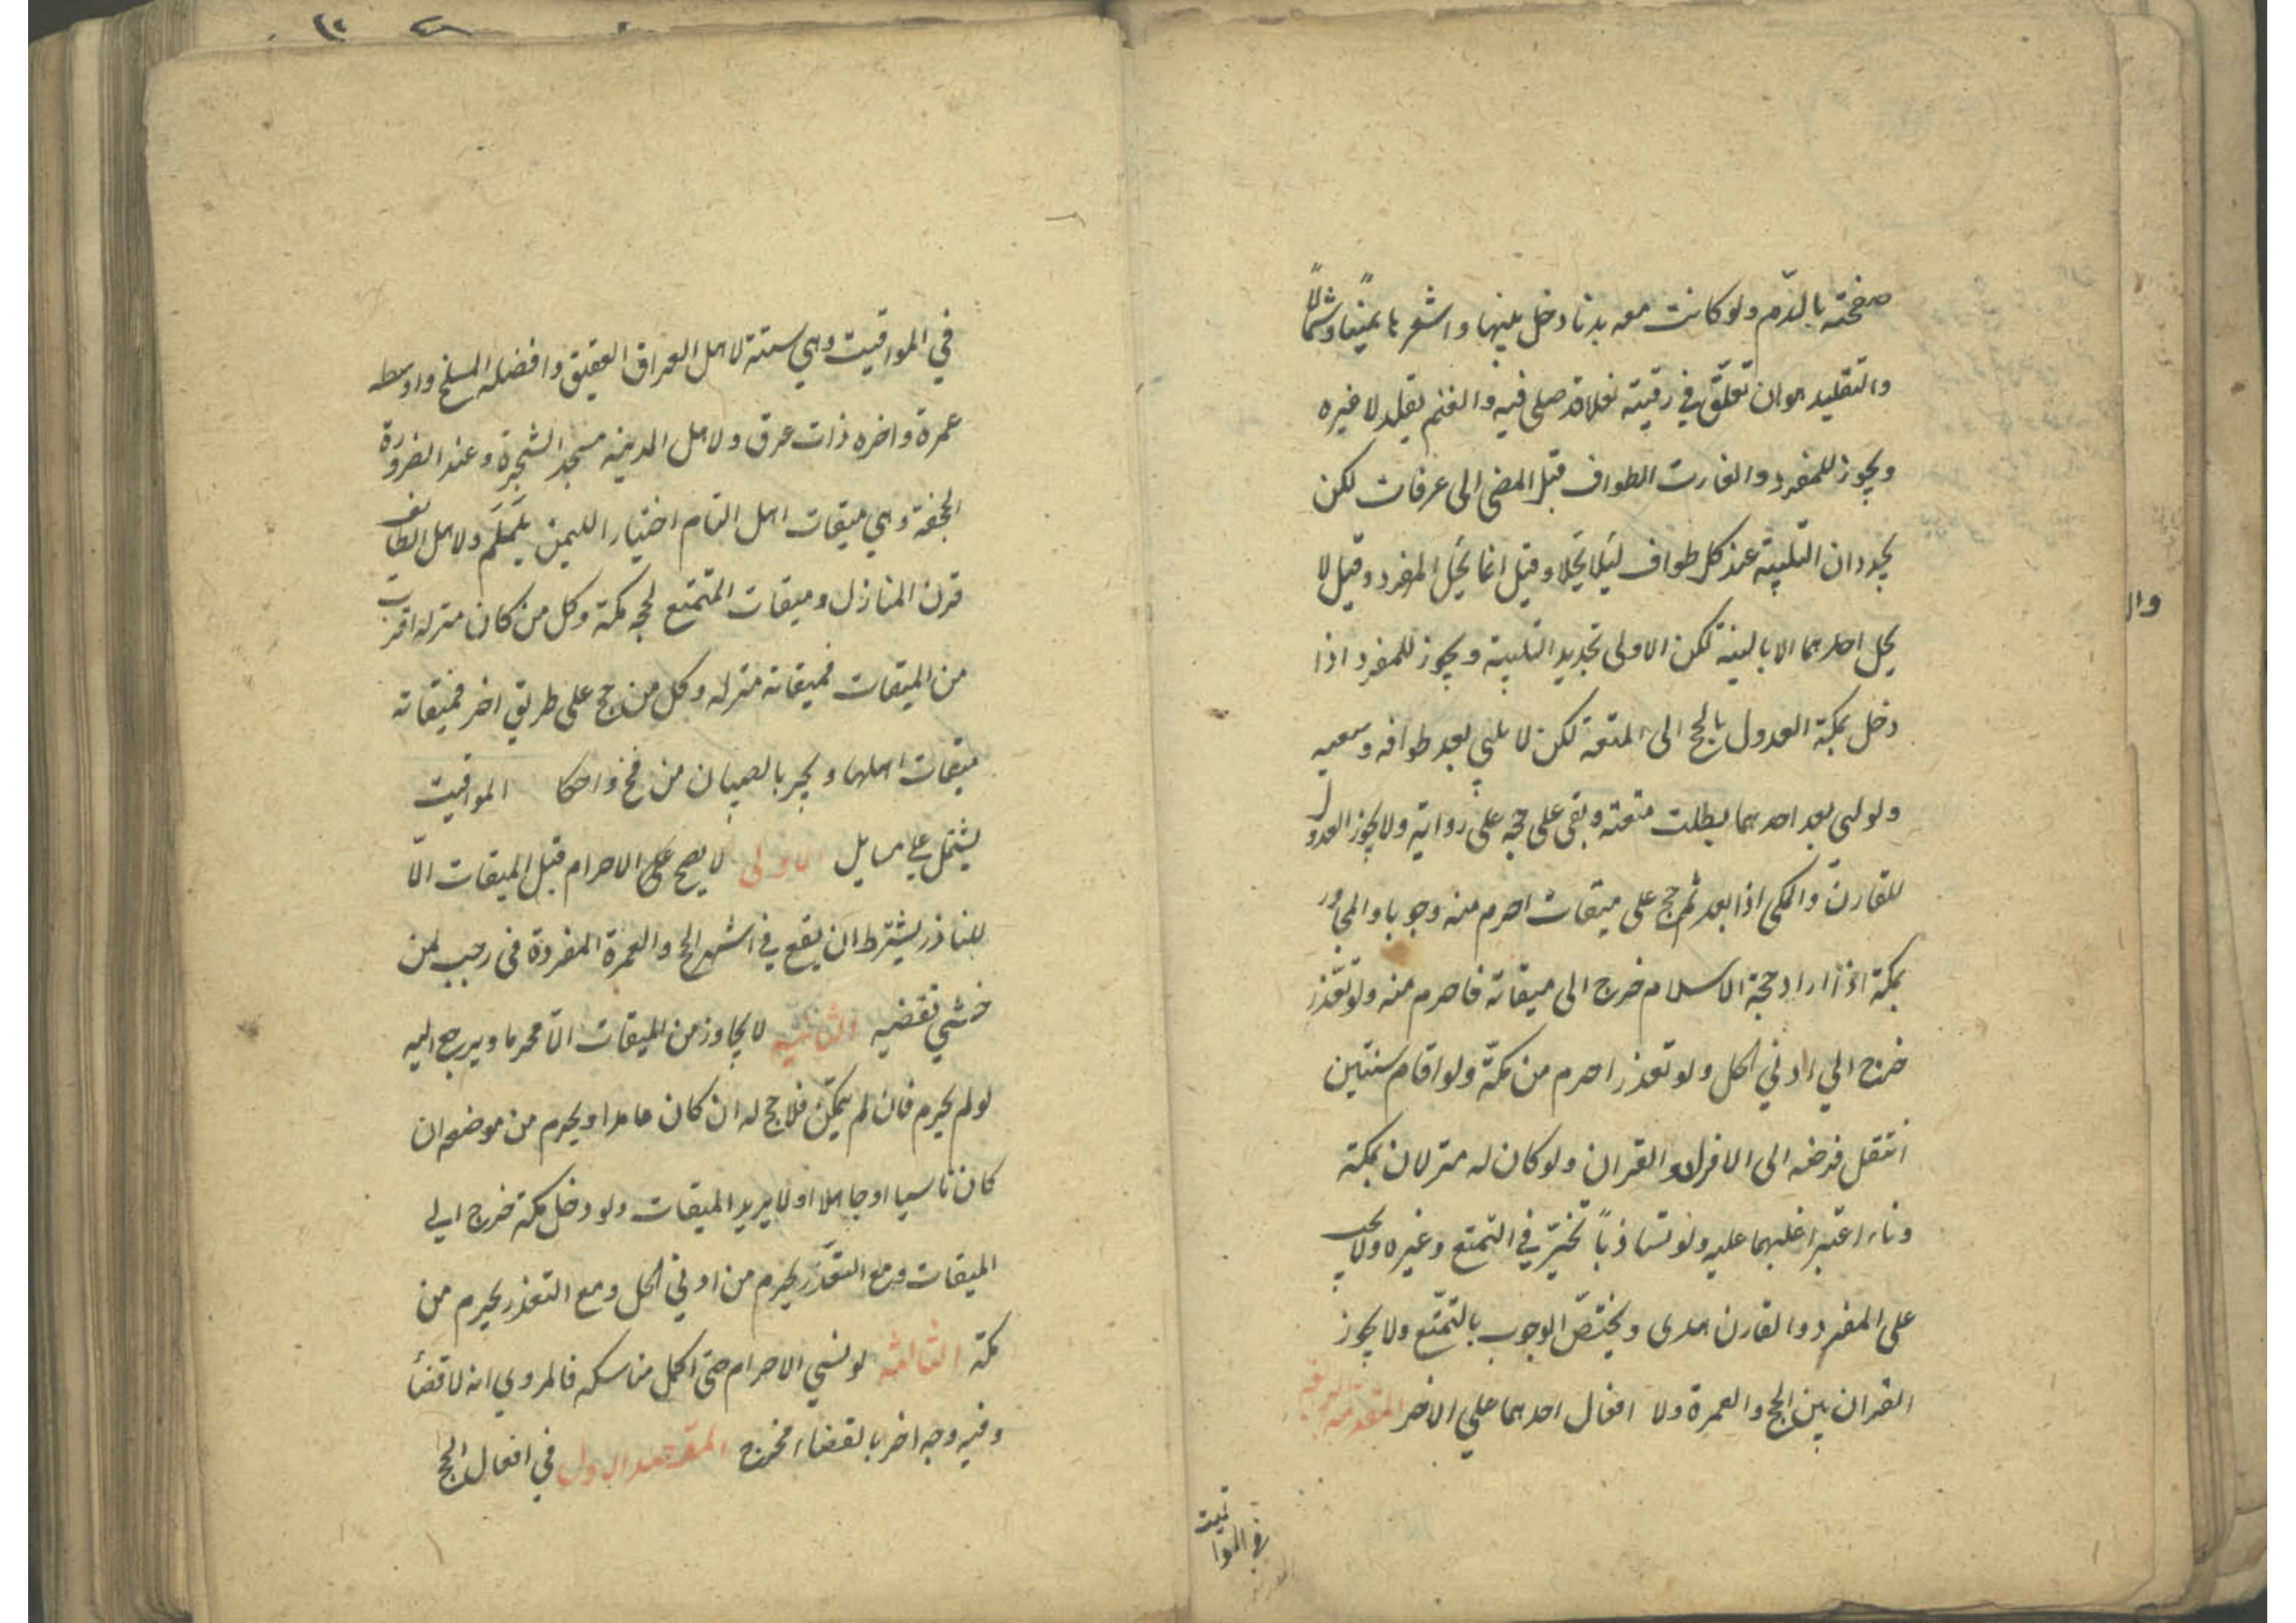 صفحته بالدّم ولو كانت معه بدنا دخل بينها واشعرها يمينًا وشمالًا
والتقليد هو ان تعلّق في رقبته نعلا قد صلى فيه والغنم يقلد لا غيره
ويجوز للمفرد والقارن الطواف قبل المضى الى عرفات لكن
يجددان التلبية عند كل طواف ليلا يحلا وقيل انما يحل المفرد وقيل لا
يحل احدهما الا بالنية لكن الاولى تجديد التلبية ويجوز للمفرد اذا
دخل بمكة العدول بالحج الى المتعة لكن لا يلبي بعد طوافه وسعيه
ولو لبى بعد احدهما بطلت متعته وبقى على حجه على رواية ولا يجوز العدول
للقارن والمكى اذا بعد ثم حج على ميقات احرم منه وجوبا والمجاور
بمكة اذا اراد حجة الاسلام خرج الى ميقاته فاحرم منه ولو تعذر
خرج الي ادني الحل ولو تعذر احرم من مكة ولو اقام سنتين
انتقل فرضه الى الافراد والقران ولو كان له منزلان بمكة
وناء اعتبر اغلبهما عليه ولو تساويا تخيّر في التمتع وغيره ولا يجب
على المفرد والقارن هدى ويختصّ الوجوب بالتمتّع ولا يجوز
القران بين الحج والعمرة ولا ادخال احدهما علي الاخر المقدمة الرابعة
في المواقيت
في المواقيت وهي ستة لاهل العراق العقيق وافضله المسلخ واوسطه
غمرة واخره ذات عرق ولاهل المدينه مسجد الشجرة وعند الضرورة
الجحفة وهي ميقات اهل الشام اختيارا لليمن يلملم ولاهل الطائف
قرن المنازل وميقات المتمتع لحجه مكة وكل من كان منزله اقرب
من الميقات فميقاته منزله وكل من حج على طريق اخر فميقاته
ميقات اهلها ويجرد بالصبيان من فخ واحكام المواقيت
يشتمل علي مسايل الاولى لا يصح الاحرام قبل الميقات الّا
للناذر بشرط ان يقع في اشهر الحج والعمرة المفردة في رجب لمن
خشي تقضيه الثانيه لا يجاوز من الميقات الّا محرما ويرجع اليه
لو لم يحرم فان لم يتمكن فلا حج له ان كان عامدا ويحرم من موضعه ان
كان ناسيا او جاهلا او لا يريد الميقات ولو دخل مكة خرج الي
الميقات ومع التعذّر يحرم من ادني الحل ومع التعذر يحرم من
مكة الثالثه لو نسي الاحرام حتى اكمل مناسكه فالمروي انه لا قضأ
وفيه وجه اخر بالقضاء مخرج المقصد الاول في افعال الحج